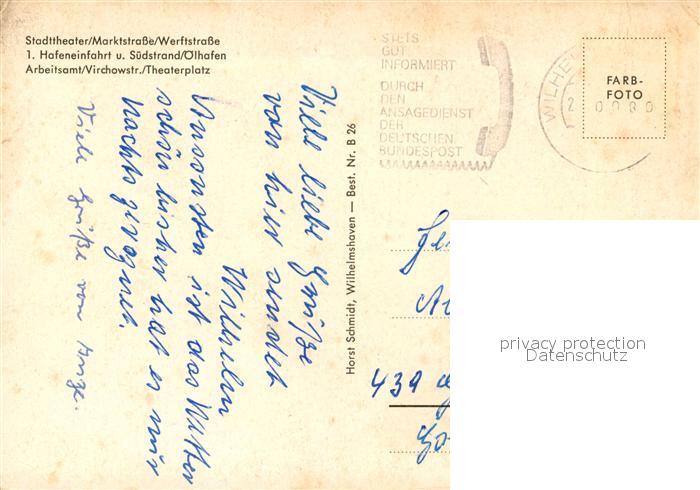 Stadttheater/Marktstraße/Werftstraße
1. Hafeneinfahrt u. Südstrand/Ölhafen
Arbeitsamt/Virchowstr./Theaterplatz
STETS
GUT
INFORMIERT
DURCH
DEN
ANSAGEDIENST
DER
DEUTSCHEN
BUNDESPOST
WILHE
FARB-
FOTO
Viele liebe Grüße
von hier sendet
Wilhelm
Ansonsten ist das Wetter
schön bisher hat es nur
nachts geregnet.
Viele Grüße von
Horst Schmidt, Wilhelmshaven — Best. Nr. B 26
439
privacy protection
Datenschutz